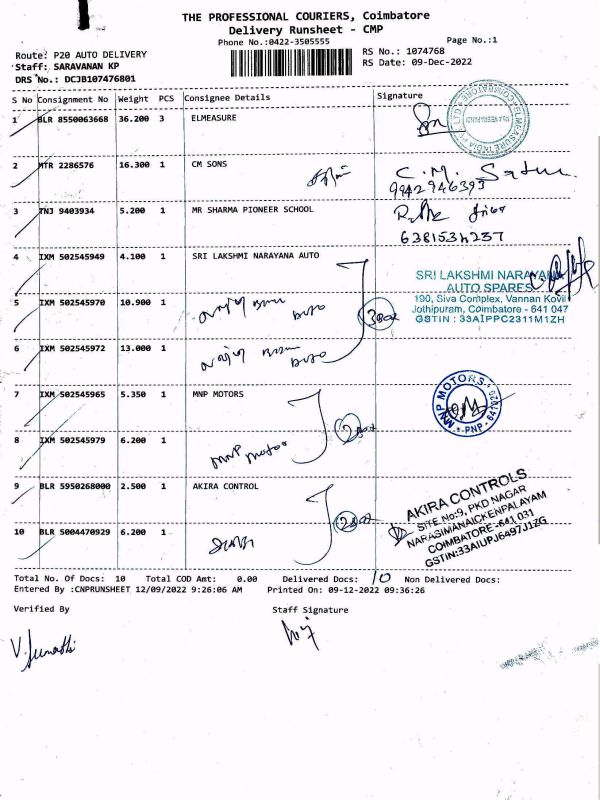 THE PROFESSIONAL COURIERS, Coimbatore
Delivery Runsheet - CMP
Phone No.:0422-3505555
Page No.:1
Route: P20 AUTO DELIVERY
RS No.: 1074768
Staff: SARAVANAN KP
RS Date: 09-Dec-2022
DRS No.: DCJB107476801
S No Consignment No Weight PCS Consignee Details Signature
1 BLR 8550063668 36.200 3 ELMEASURE
2 MTR 2286576 16.300 1 CM SONS
C.M.
9942946393
3 TNJ 9403934 5.200 1 MR SHARMA PIONEER SCHOOL
6381534237
4 IXM 502545949 4.100 1 SRI LAKSHMI NARAYANA AUTO
SRI LAKSHMI NARAYANA
AUTO SPARES
5 IXM 502545970 10.900 1
190, Siva Complex, Vannan Kovil
Jothipuram, Coimbatore - 641 047
GSTIN : 33AIPPC2311M1ZH
6 IXM 502545972 13.000 1
7 IXM 502545965 5.350 1 MNP MOTORS
MNP MOTORS
PNP
8 IXM 502545979 6.200 1
MNP Motor
9 BLR 5950268000 2.500 1 AKIRA CONTROL
AKIRA CONTROLS
SITE No:9, PKD NAGAR
NARASIMANAICKENPALAYAM
COIMBATORE -641 031
GSTIN:33AIUPJ6497J1ZG
10 BLR 5004470929 6.200 1
Total No. Of Docs: 10 Total COD Amt: 0.00 Delivered Docs: 10 Non Delivered Docs:
Entered By :CNPRUNSHEET 12/09/2022 9:26:06 AM Printed On: 09-12-2022 09:36:26
Verified By Staff Signature